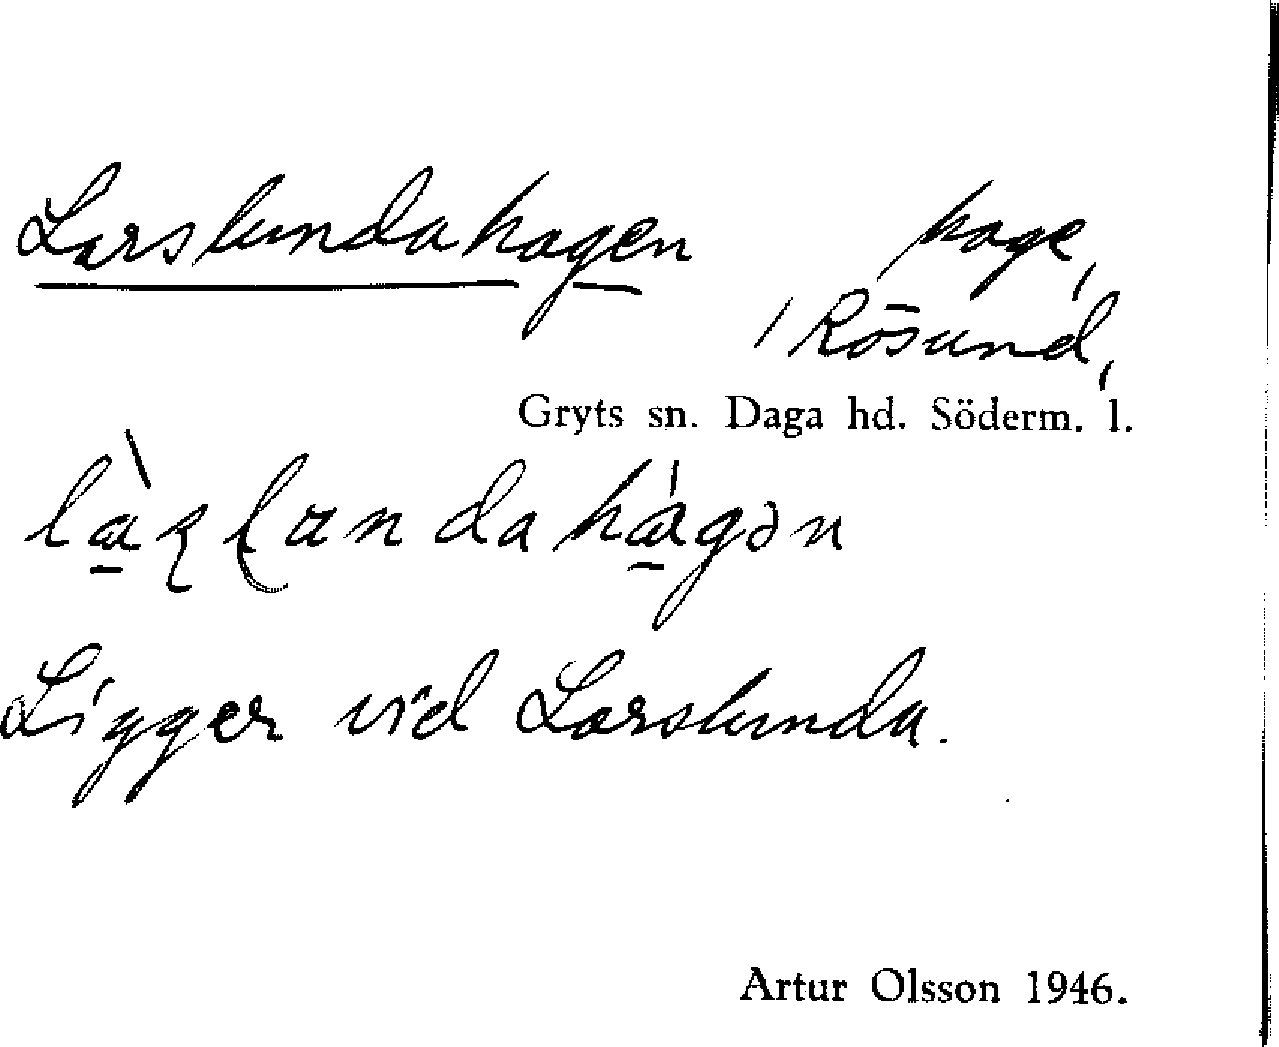 Larslundahagen hage,
/ Rösund,
Gryts sn. Daga hd. Söderm. l.
Ligger vid Larslunda.
Artur Olsson 1946.